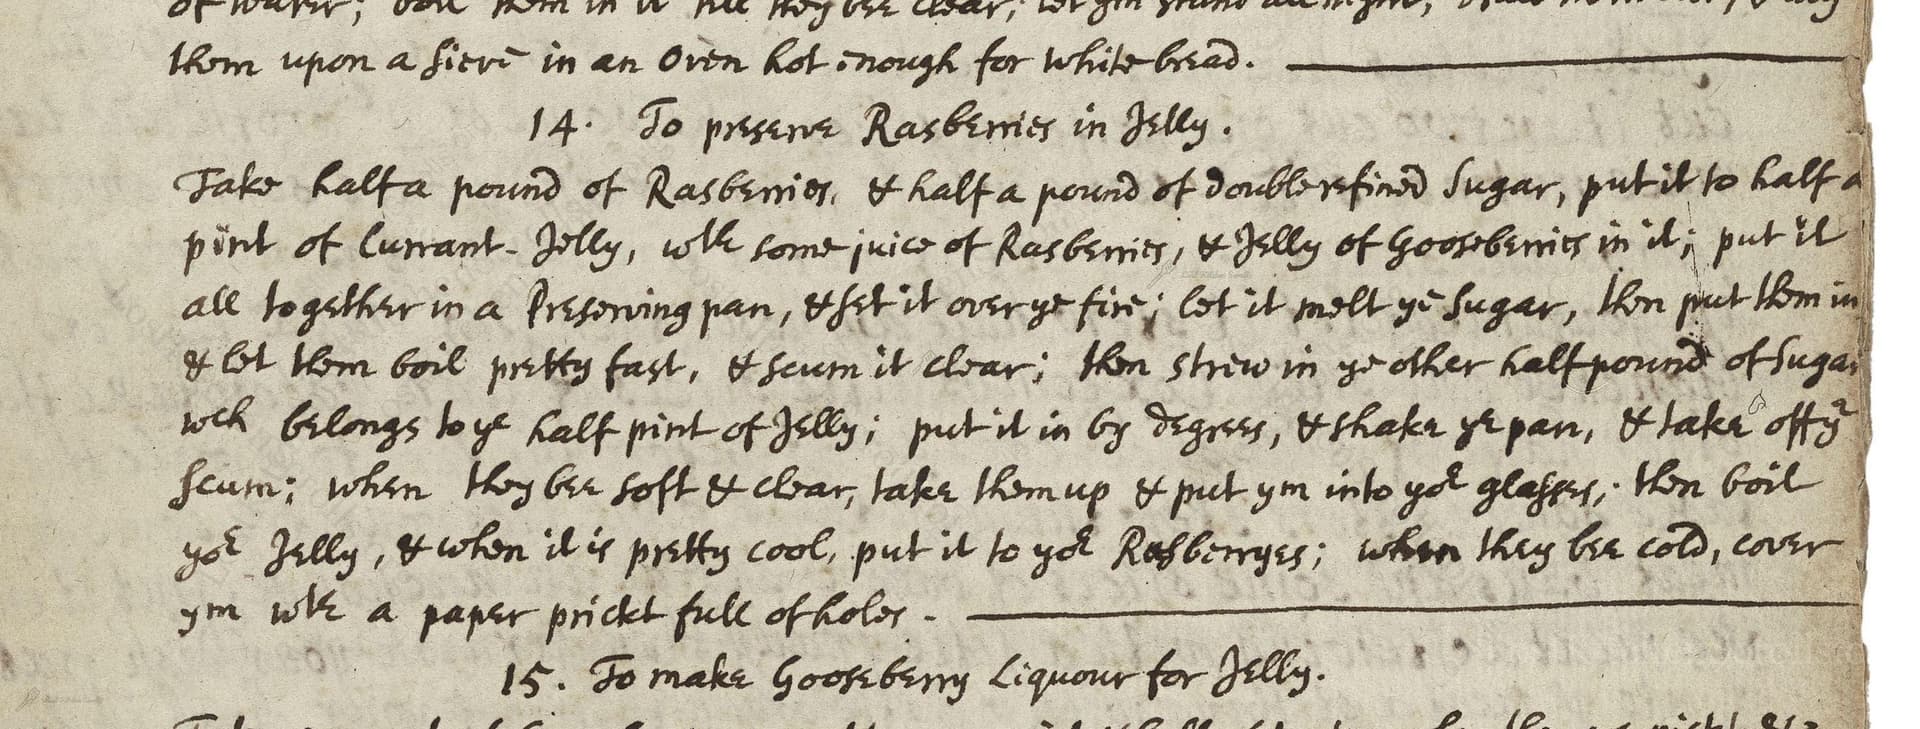 of water; boil them in it till they bee clear; let ym stand all night,
them upon a sieve in an Oven hot enough for white bread.
14. To preserve Rasberries in Jelly.
Take half a pound of Rasberries, & half a pound of double refined Sugar, put it to half a
pint of Currant-Jelly, wth some juice of Rasberries, & Jelly of Gooseberries in it; put it
all together in a Preserving pan, & set it over ye fire; let it melt ye Sugar, then put them in
& let them boil pretty fast, & scum it clear; then strew in ye other half pound of Sugar
wch belongs to ye half pint of Jelly; put it in by degrees, & shake ye pan, & take off ye
scum; when they bee soft & clear, take them up & put ym into yor glasses; then boil
yor Jelly, & when it is pretty cool, put it to yor Rasberryes; when they bee cold, cover
ym wth a paper prickt full of holes.
15. To make Gooseberry Liquour for Jelly.